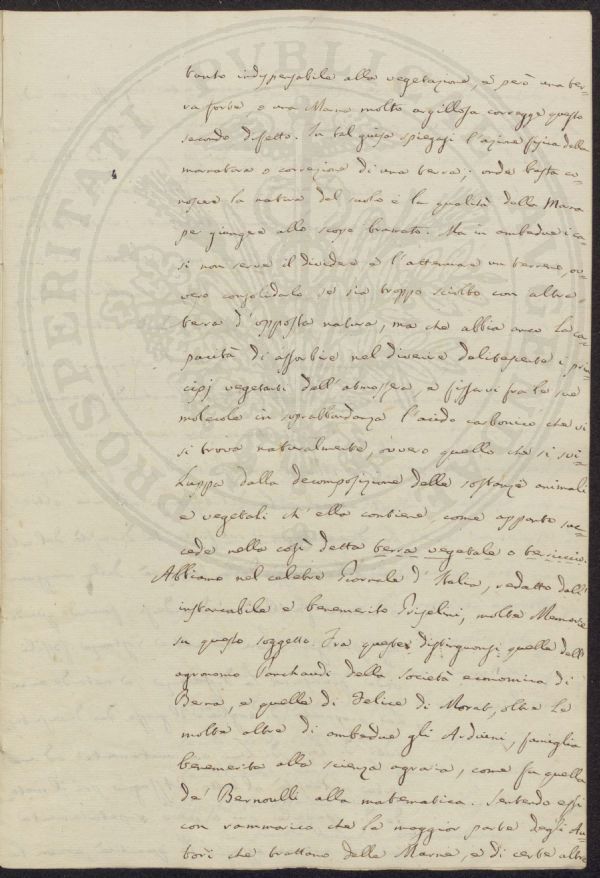 tanto indispensabile alla vegetazione, e però una ter-
ra forte o una Marna molto argillosa corregge questo
secondo difetto. In tal guisa spiegasi l'azione fisica della
marnatura o correzione di una terra; onde basta co-
noscere la natura del suolo e la qualità della Marna
per giungere allo scopo bramato. Ma in ambedue i ca-
si non serve il dividere e l'attenuare un terreno, ov-
vero consolidarlo se sia troppo sciolto con altra
terra d'opposta natura, ma che abbia anco la ca-
pacità di assorbire nel divenire deliquescente i prin-
cipj vegetanti dell'atmosfera, e fissarvi fra le sue
molecole in soprabbondanza l'acido carbonico che vi
si trova naturalmente, ovvero quello che si svi-
luppa dalla decomposizione delle sostanze animali
e vegetali ch'ella contiene come appunto suc-
cede nella così detta terra vegetale o terriccio.
Abbiamo nel celebre Giornale d'Italia, redatto dall'
instancabile e benemerito Griselini, molte Memorie
su questo soggetto. Fra queste distinguonsi quelle dell'
agronomo della Società economica di
Berna, e quelle di Felice di Morat, oltre le
molte altre di ambedue gli Arduini, famiglia
benemerita alla scienza agraria, come fu quella
de' Bernoulli alla matematica. Sentendo essi
con rammarico che la maggior parte degli Au-
tori che trattano delle Marne, e di certe altre
PUBLIC
PROSPERITATI